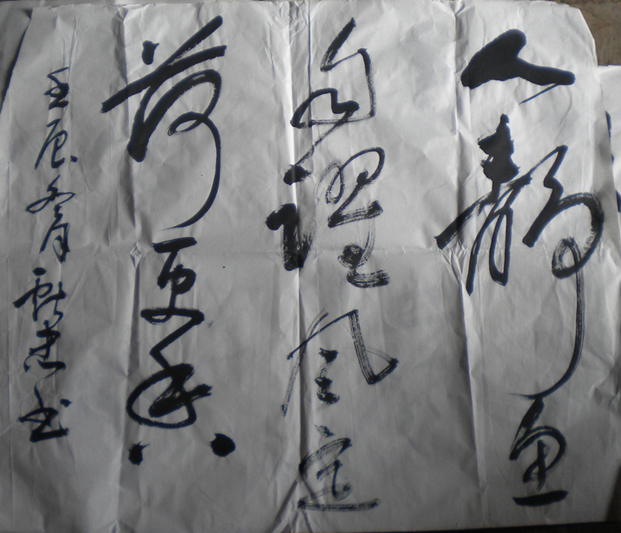 人静鱼
自躍風定
荷更香
壬辰冬月书